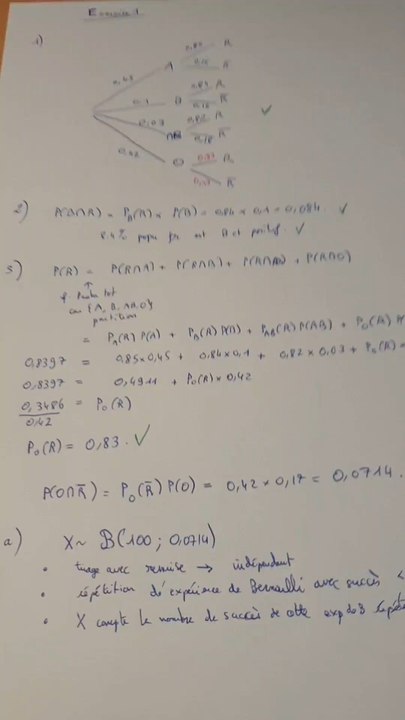 Exercice 1
1)
0,85 R
A
0,45 0,15 R̄
0,84 R
0,1 B
0,16 R̄
0,03 0,82 R
AB
0,18 R̄
0,42 O 0,83 R
0,17 R̄
2) P(B∩R) = P_B(R) × P(B) = 0,84 × 0,1 = 0,084 ✓
8,4% est B et positif. ✓
3) P(R) = P(R∩A) + P(R∩B) + P(R∩AB) + P(R∩O)
↑
tot
{A, B, AB, O}
partition
= P_A(R) P(A) + P_B(R) P(B) + P_AB(R) P(AB) + P_O(R)
0,8397 = 0,85×0,45 + 0,84×0,1 + 0,82×0,03 + P_O(R) ×
0,8397 = 0,4911 + P_O(R) × 0,42
0,3486 / 0,42 = P_O(R)
P_O(R) = 0,83 ✓
P(O∩R̄) = P_O(R̄) P(O) = 0,42 × 0,17 = 0,0714.
a) X ~ B(100 ; 0,0714)
• tirage avec remise → indépendant
• répétition d'expérience de Bernoulli avec succès
• X compte le nombre de succès de cette exp de B